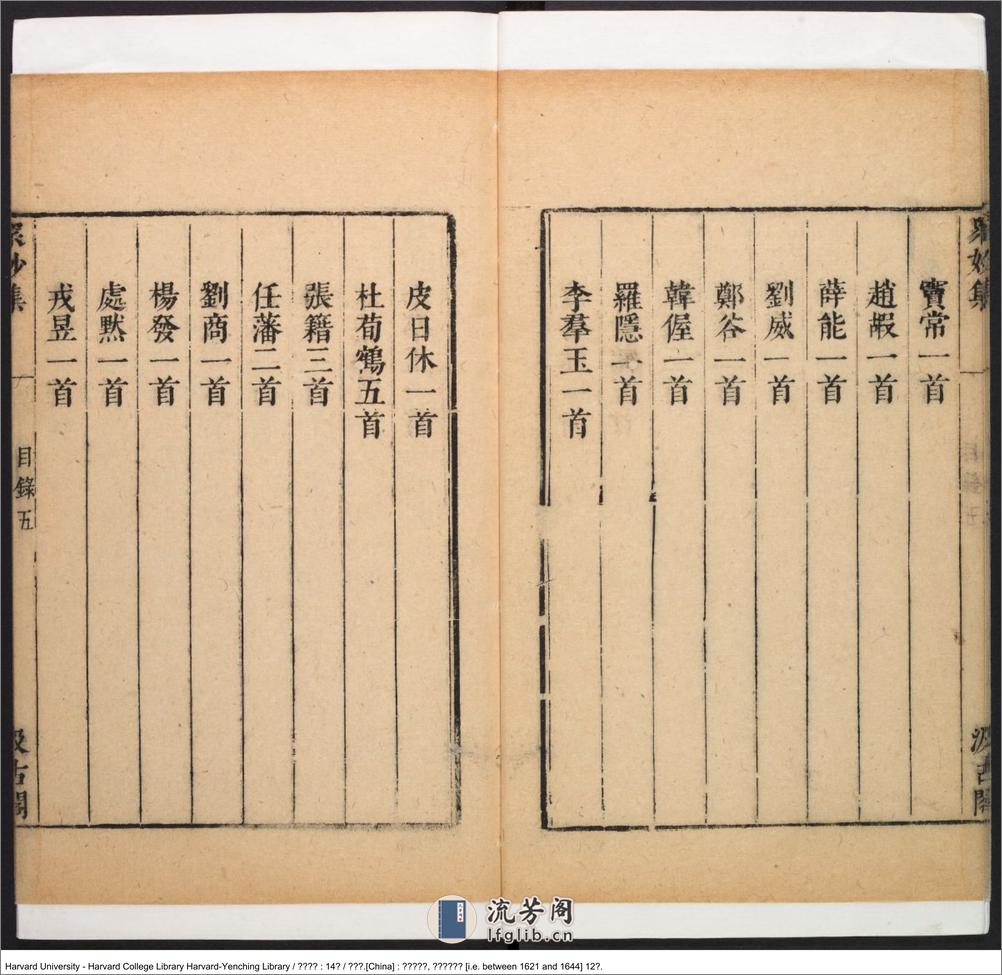 眾妙集
竇常一首
趙嘏一首
薛能一首
劉威一首
鄭谷一首
韓偓一首
羅隱一首
李羣玉一首
汲古閣
皮日休一首
杜荀鶴五首
張籍三首
任藩二首
劉商一首
楊發一首
處默一首
戎昱一首
眾妙集
目錄五
汲古閣
流芳阁
lfglib.cn
Harvard University - Harvard College Library Harvard-Yenching Library / ???? : 14? / ???.[China] : ?????, ?????? [i.e. between 1621 and 1644] 12?.